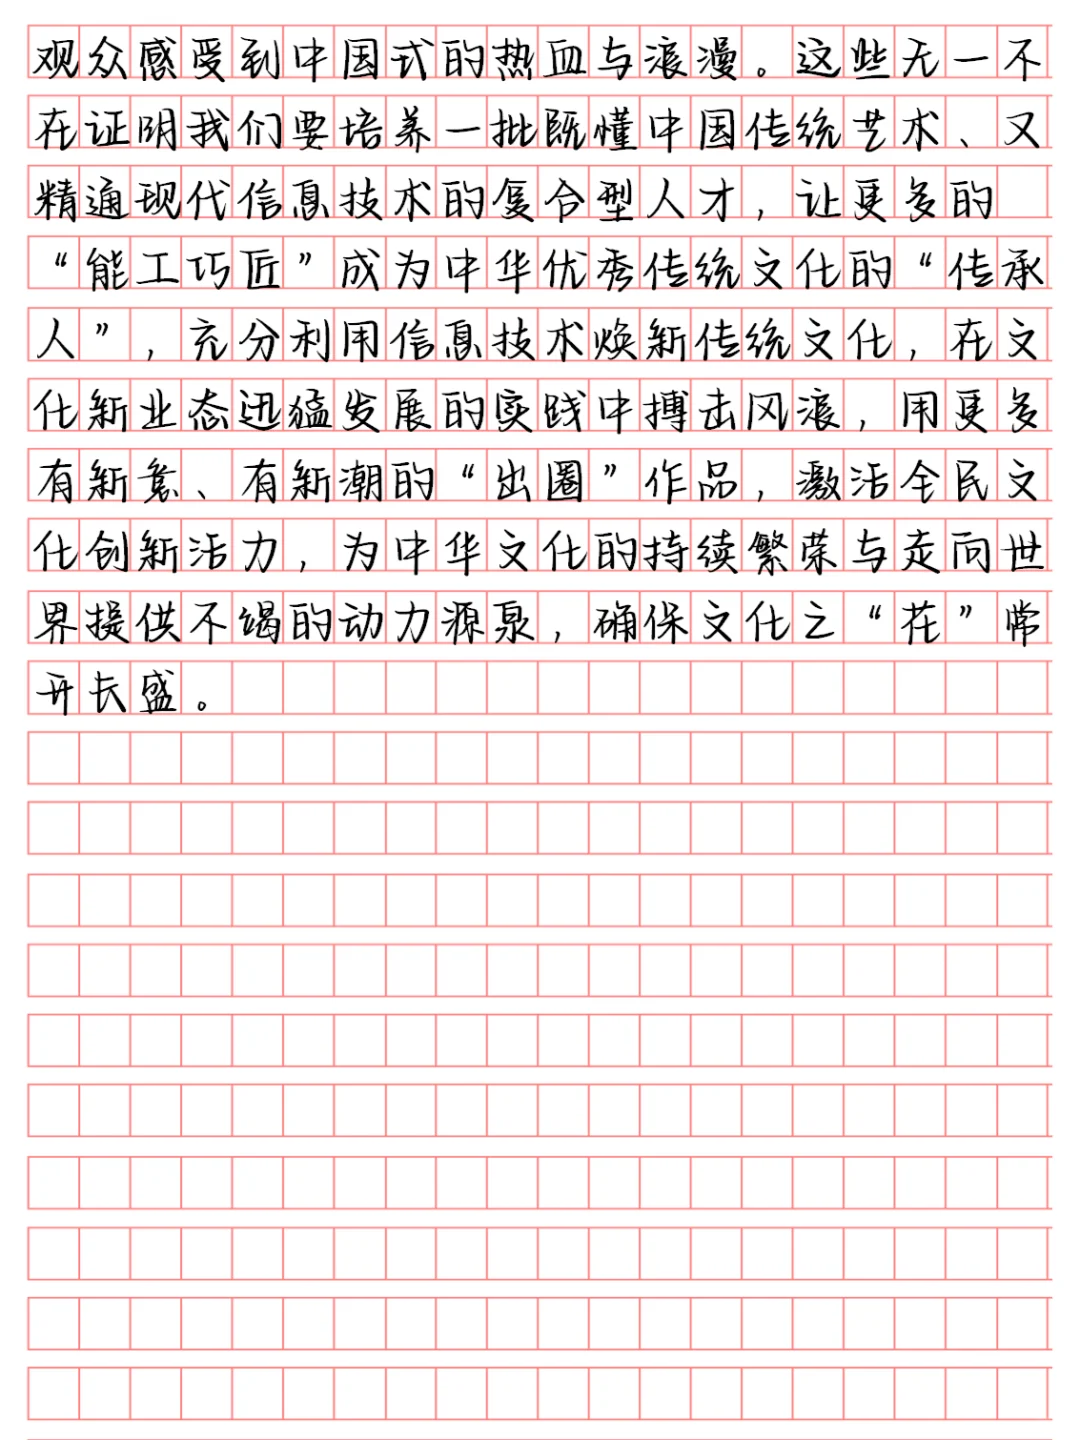 观众感受到中国式的热血与浪漫。这些无一不
在证明我们要培养一批既懂中国传统艺术、又
精通现代信息技术的复合型人才，让更多的
“能工巧匠”成为中华优秀传统文化的“传承
人”，充分利用信息技术焕新传统文化，在文
化新业态迅猛发展的实践中搏击风浪，用更多
有新意、有新潮的“出圈”作品，激活全民文
化创新活力，为中华文化的持续繁荣与走向世
界提供不竭的动力源泉，确保文化之“花”常
开长盛。